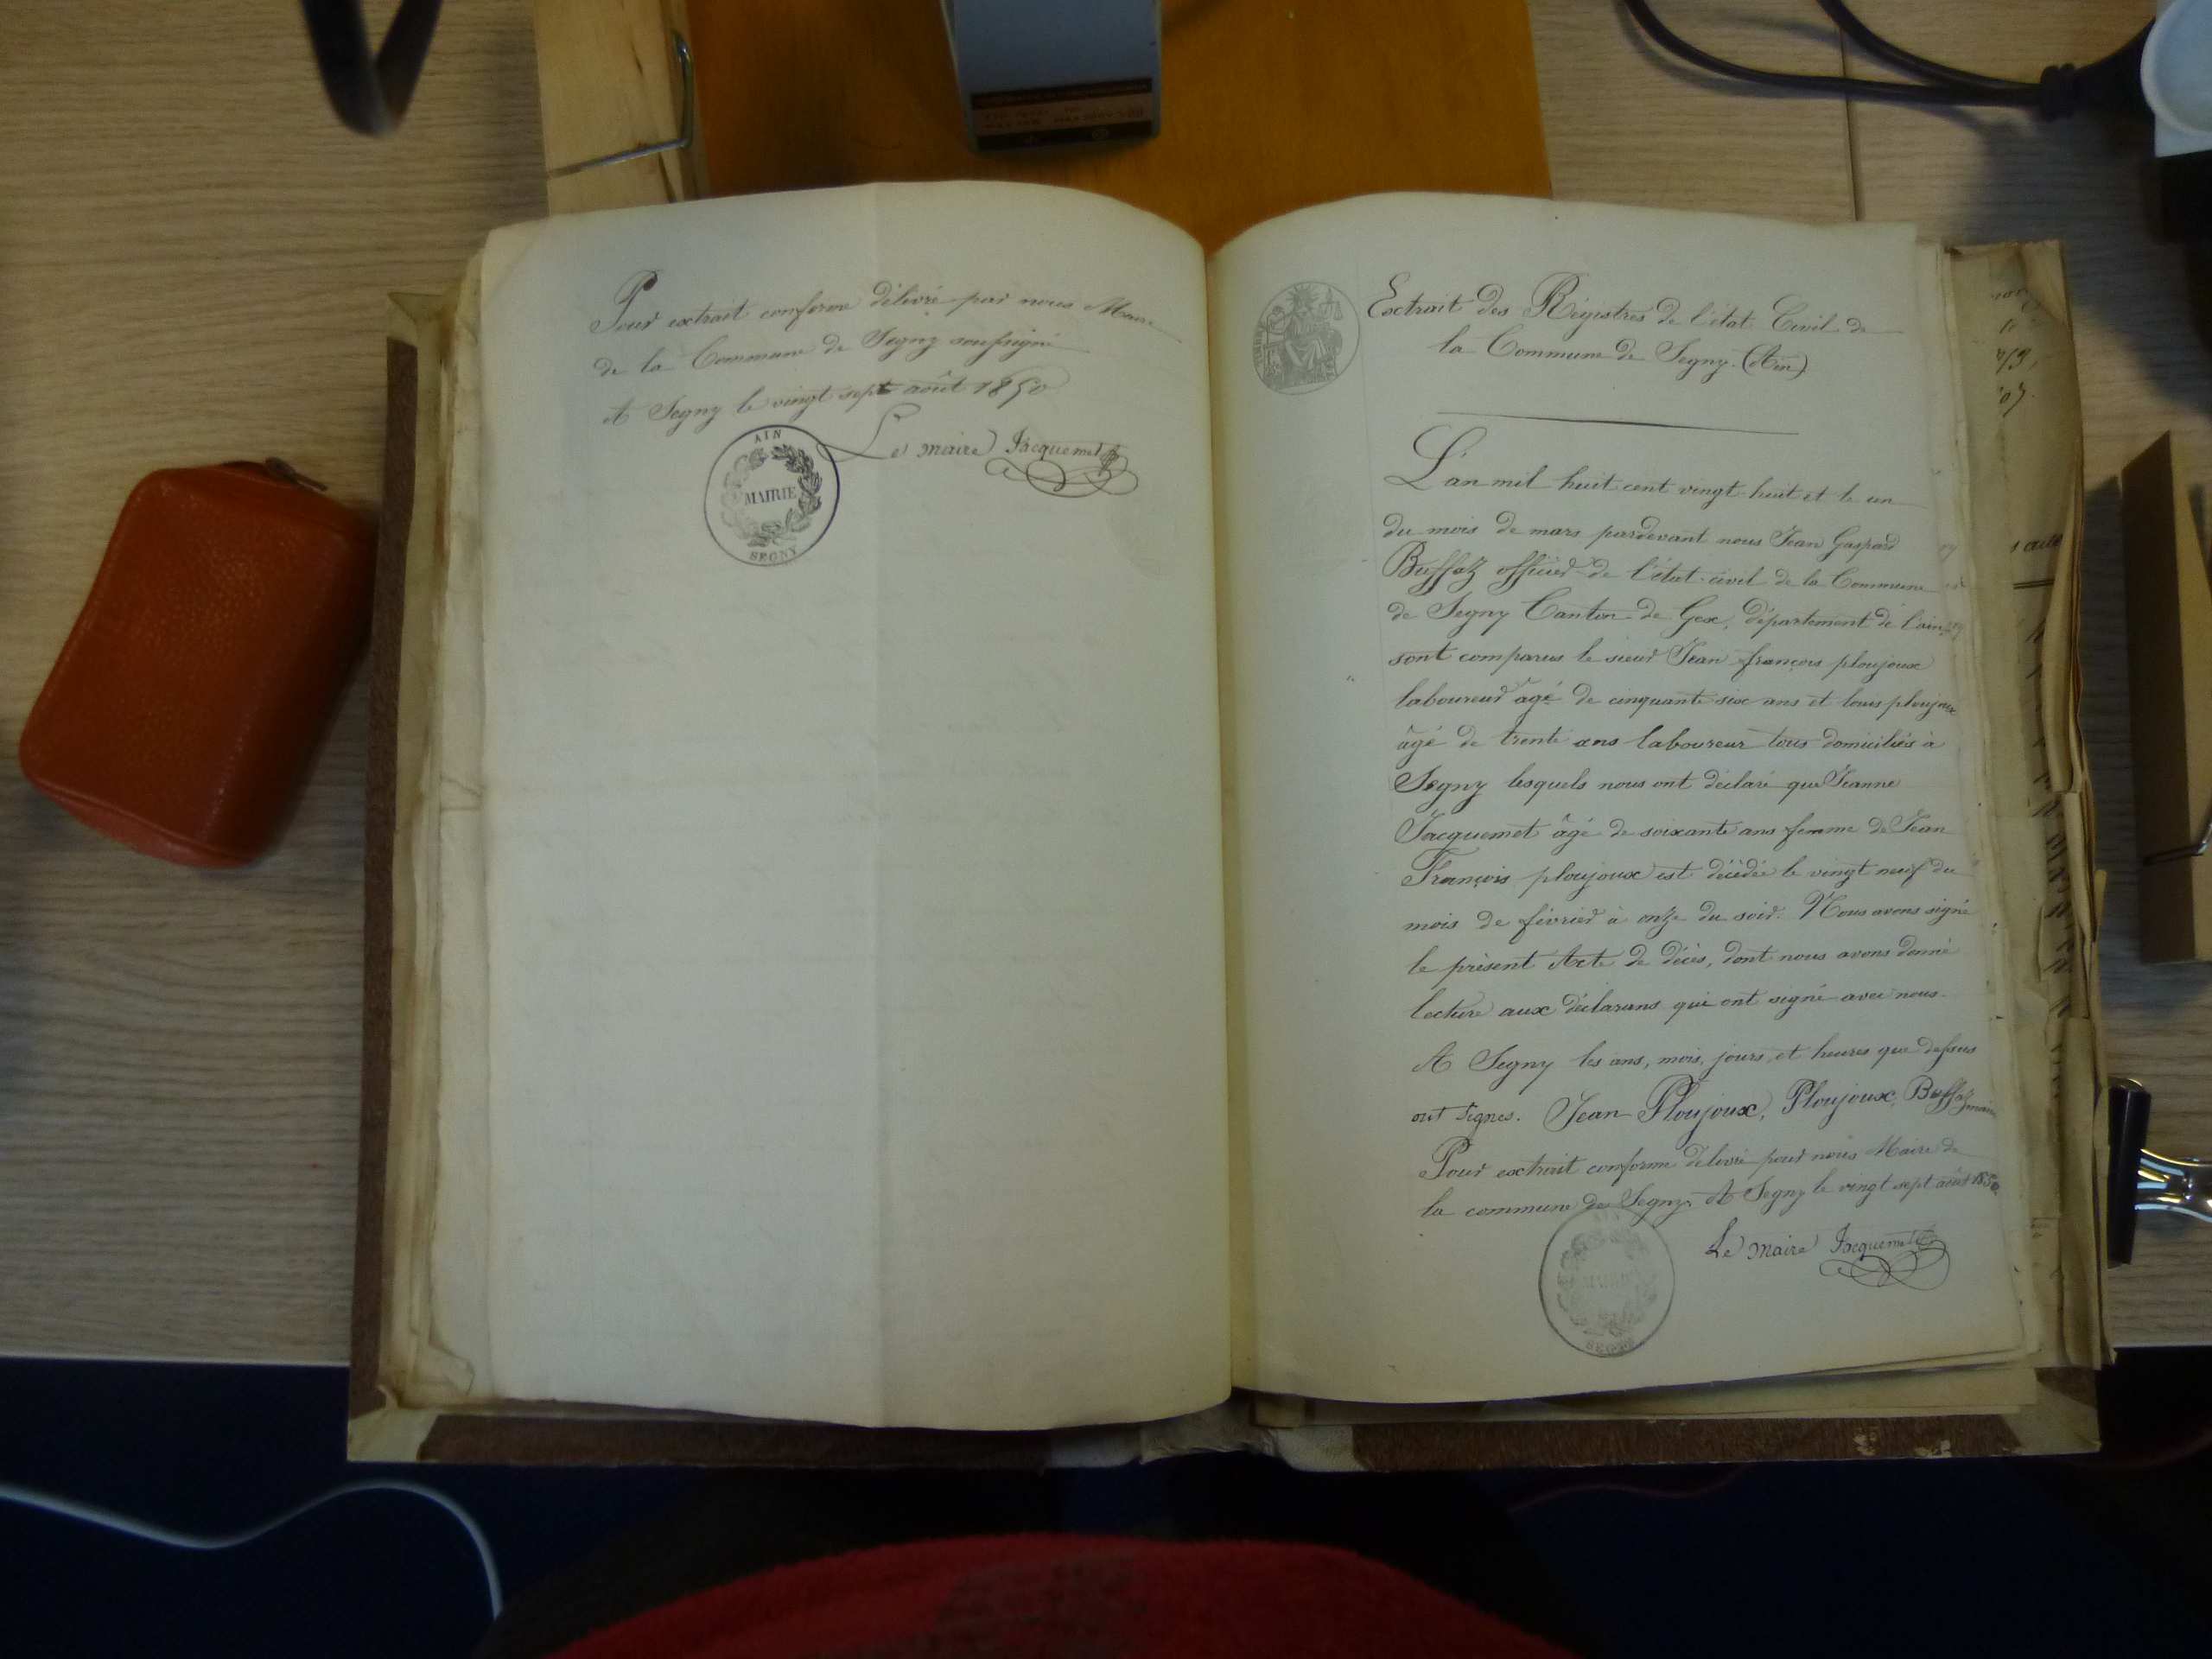 Pour extrait conforme délivré par nous Maire
de la Commune de Segny soussigné
A Segny le vingt sept août 1850
Le maire Jacquemet
AIN
MAIRIE
SEGNY
Extrait des Régistres de l'état Civil de
la Commune de Segny. (Ain)
L'an mil huit cent vingt huit et le un
du mois de mars pardevant nous Jean Gaspard
Buffaz officier de l'état civil de la Commune
de Segny Canton de Gex, département de l'ain
sont comparus le sieur Jean françois ploujoux
laboureur âgé de cinquante six ans et louis ploujoux
âgé de trente ans laboureur tous domiciliés à
Segny lesquels nous ont déclaré que Jeanne
Jacquemet âgé de soixante ans femme de Jean
François ploujoux est décédée le vingt neuf du
mois de février à onze du soir. Nous avons signé
le présent Acte de décès, dont nous avons donné
lecture aux déclarans qui ont signé avec nous
A Segny les ans, mois, jours, et heures que dessus
ont signés. Jean Ploujoux, Ploujoux, Buffaz maire
Pour extrait conforme délivré par nous Maire de
la commune de Segny. A Segny le vingt sept août 1850
Le maire Jacquemet
MAIRIE
SEGNY